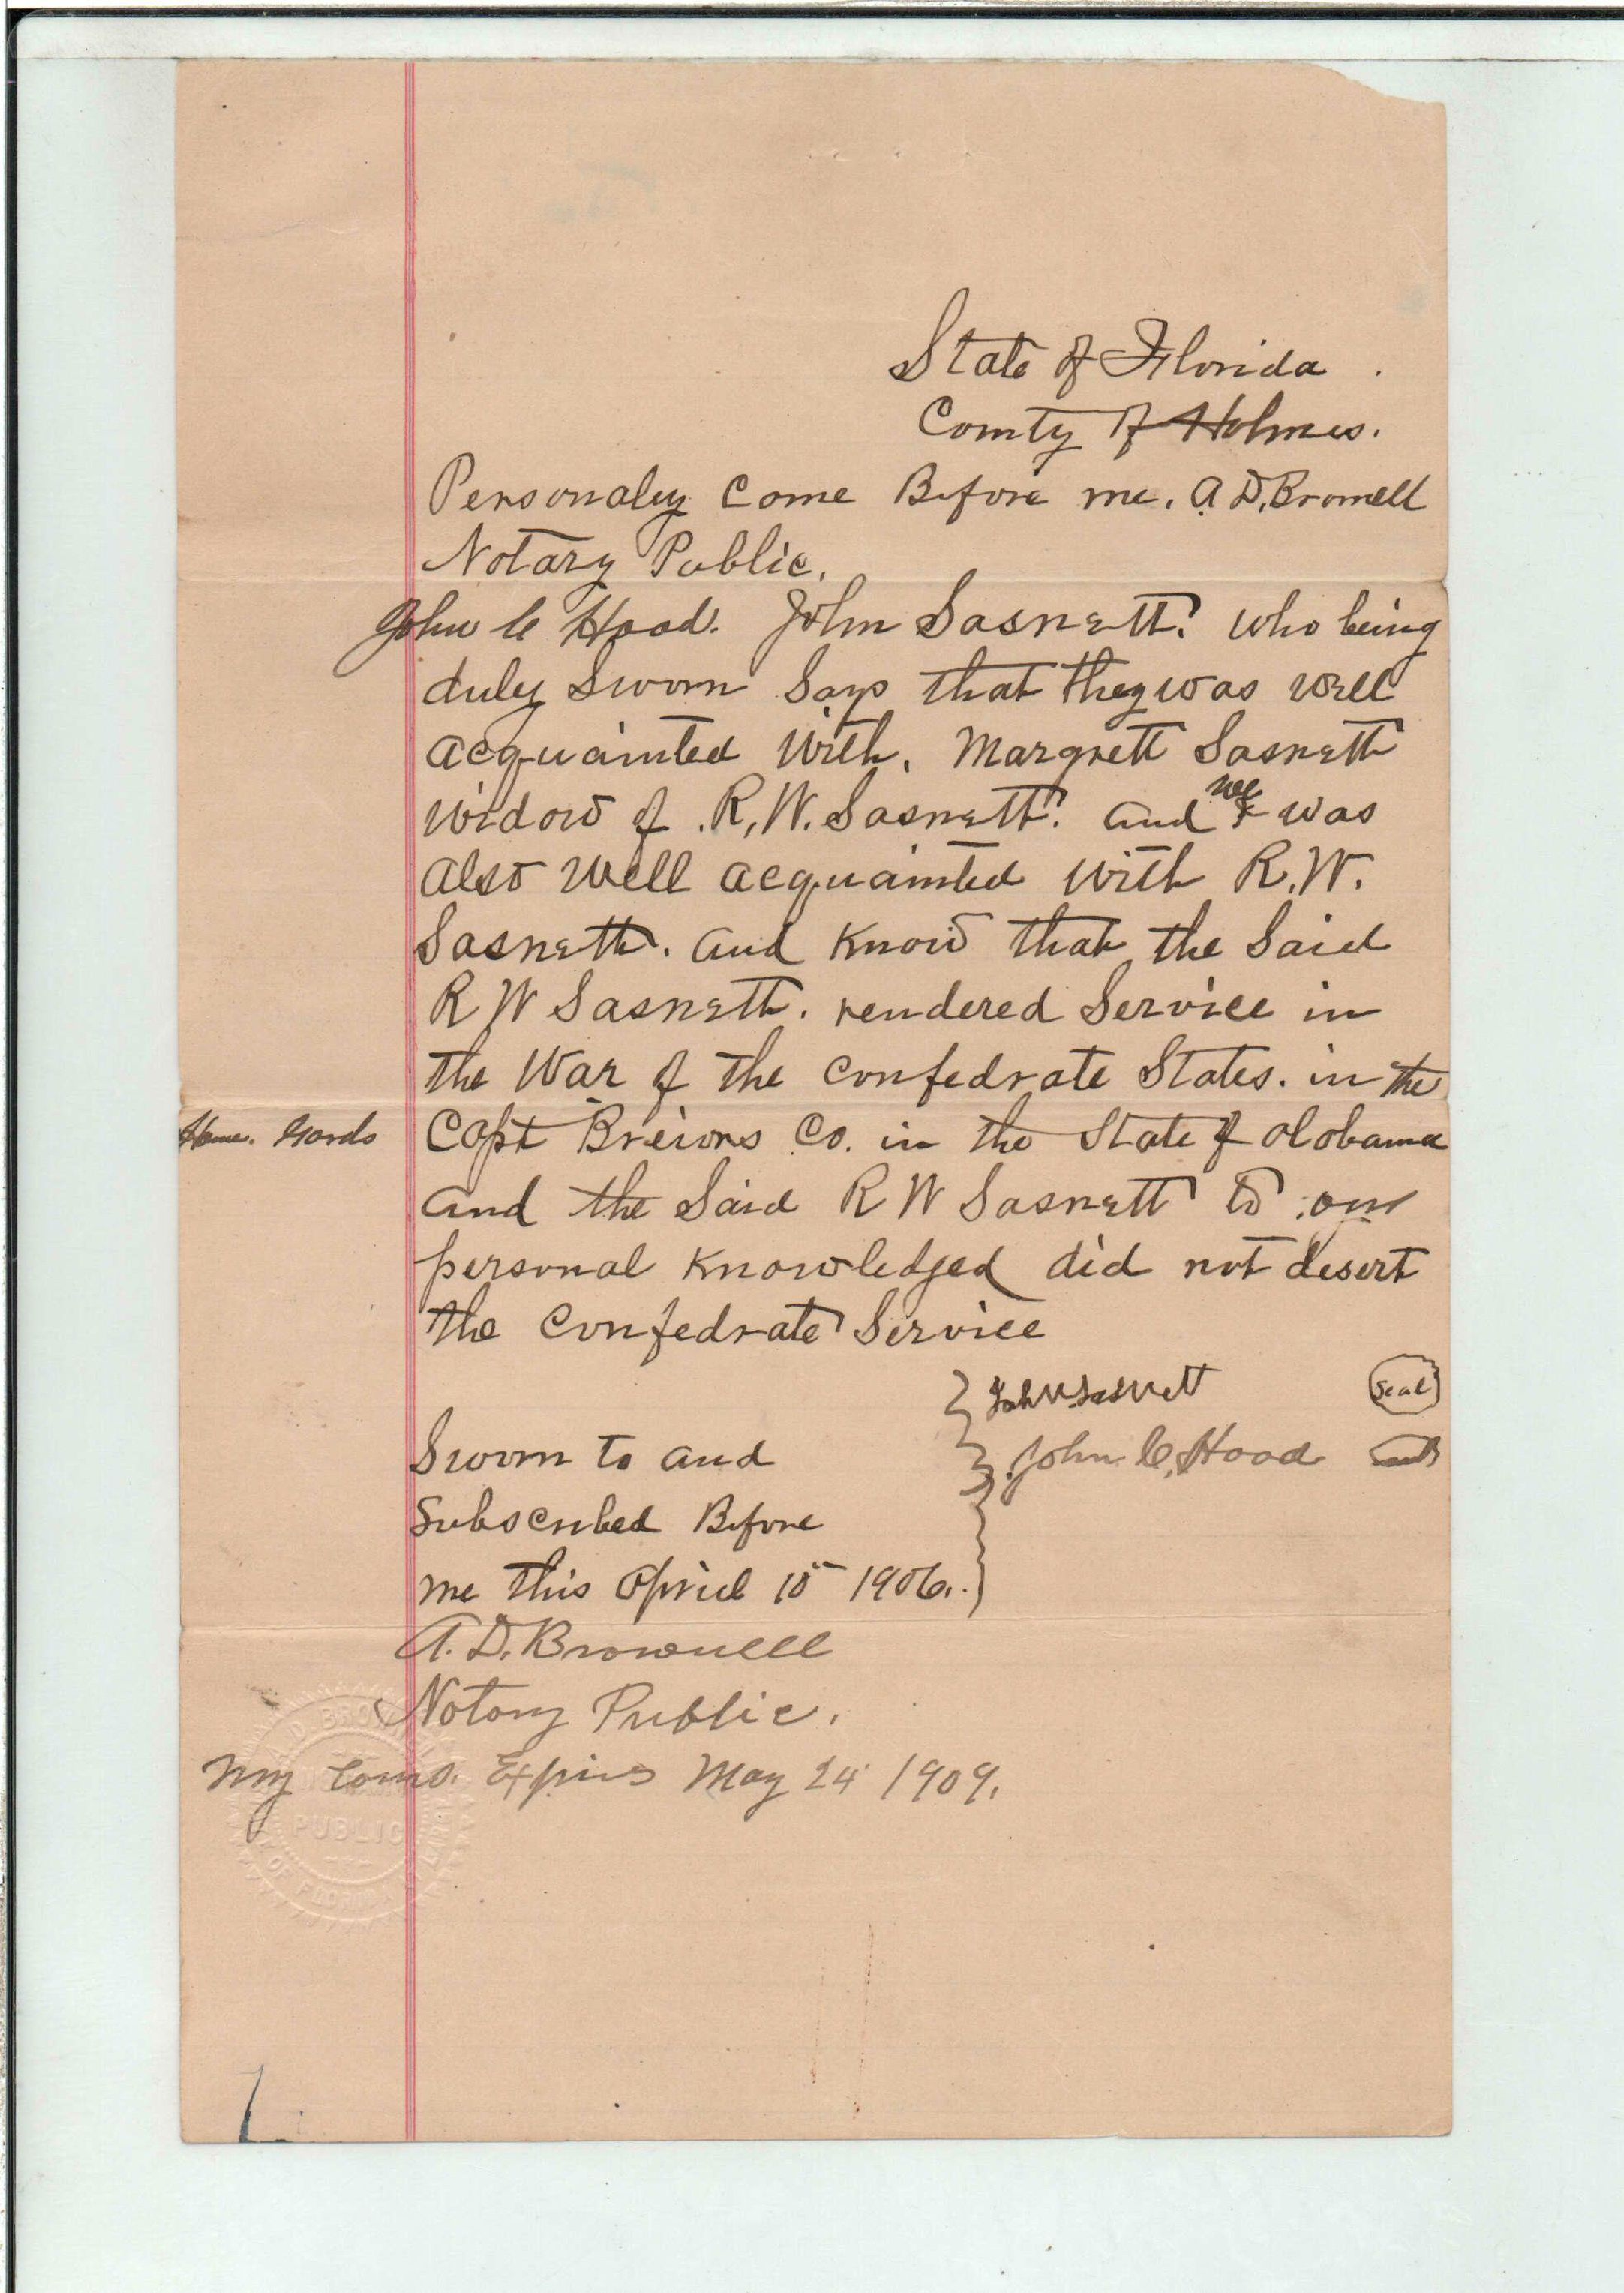 State of Florida.
County of Holmes.
Personaley Come Before me. A. D. Bromell
Notary Public.
John C Hood. John Sasnett. who being
duley Sworn Says that they was well
acquainted with. Margrett Sasnett
widow of R. W. Sasnett. and we was
also well acquainted with R. W.
Sasnett. and Know that the Said
R W Sasnett. rendered Service in
the War of the Confedrate States. in the
Home. Gards
Capt Co. in the State of Alabama
and the Said R W Sasnett to our
personal Knowledged did not desert
the Confedrate Service
John Sasnett Seal
John C. Hood Seal
Sworn to and
Subscribed Before
me this April 1906.
A. D. Brownell
Notary Public.
My Coms. Expires May 24 1909.
A. D. BROW
PUBLIC
OF FLORIDA